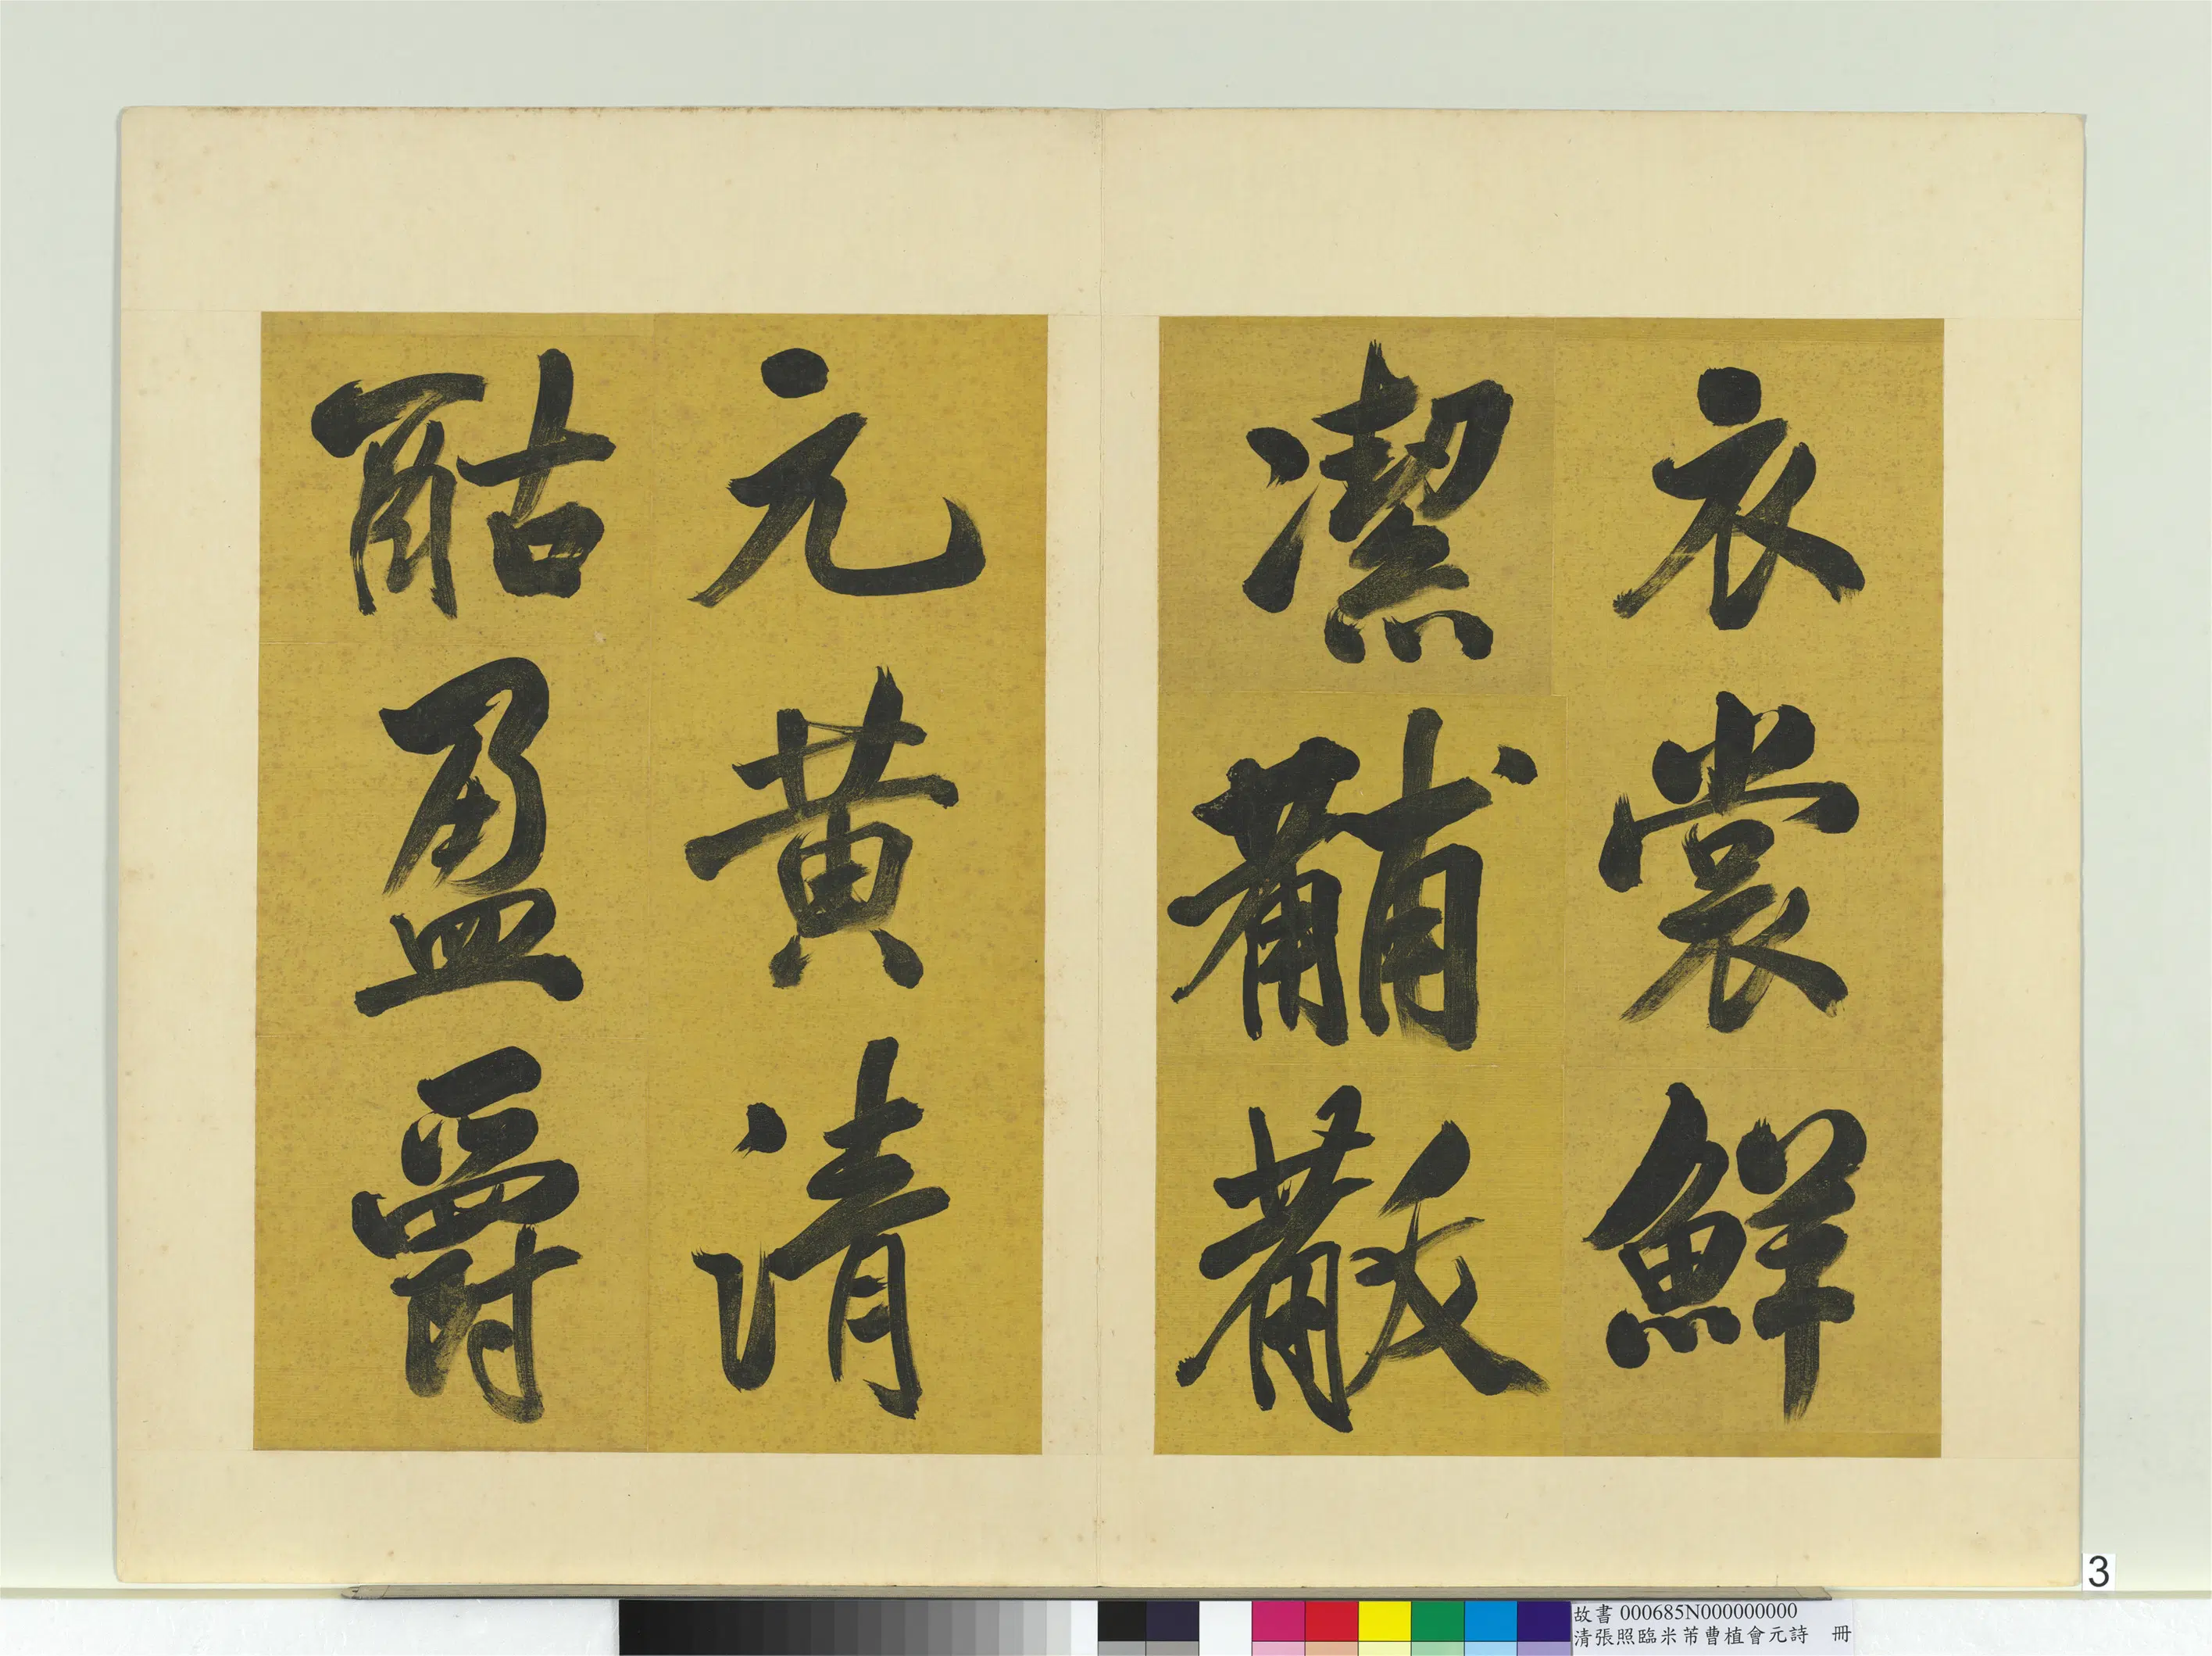 衣裳鮮
潔黼黻
元黃清
酤盈爵
3
故書 000685N000000000
清張照臨米芾曹植會元詩 冊